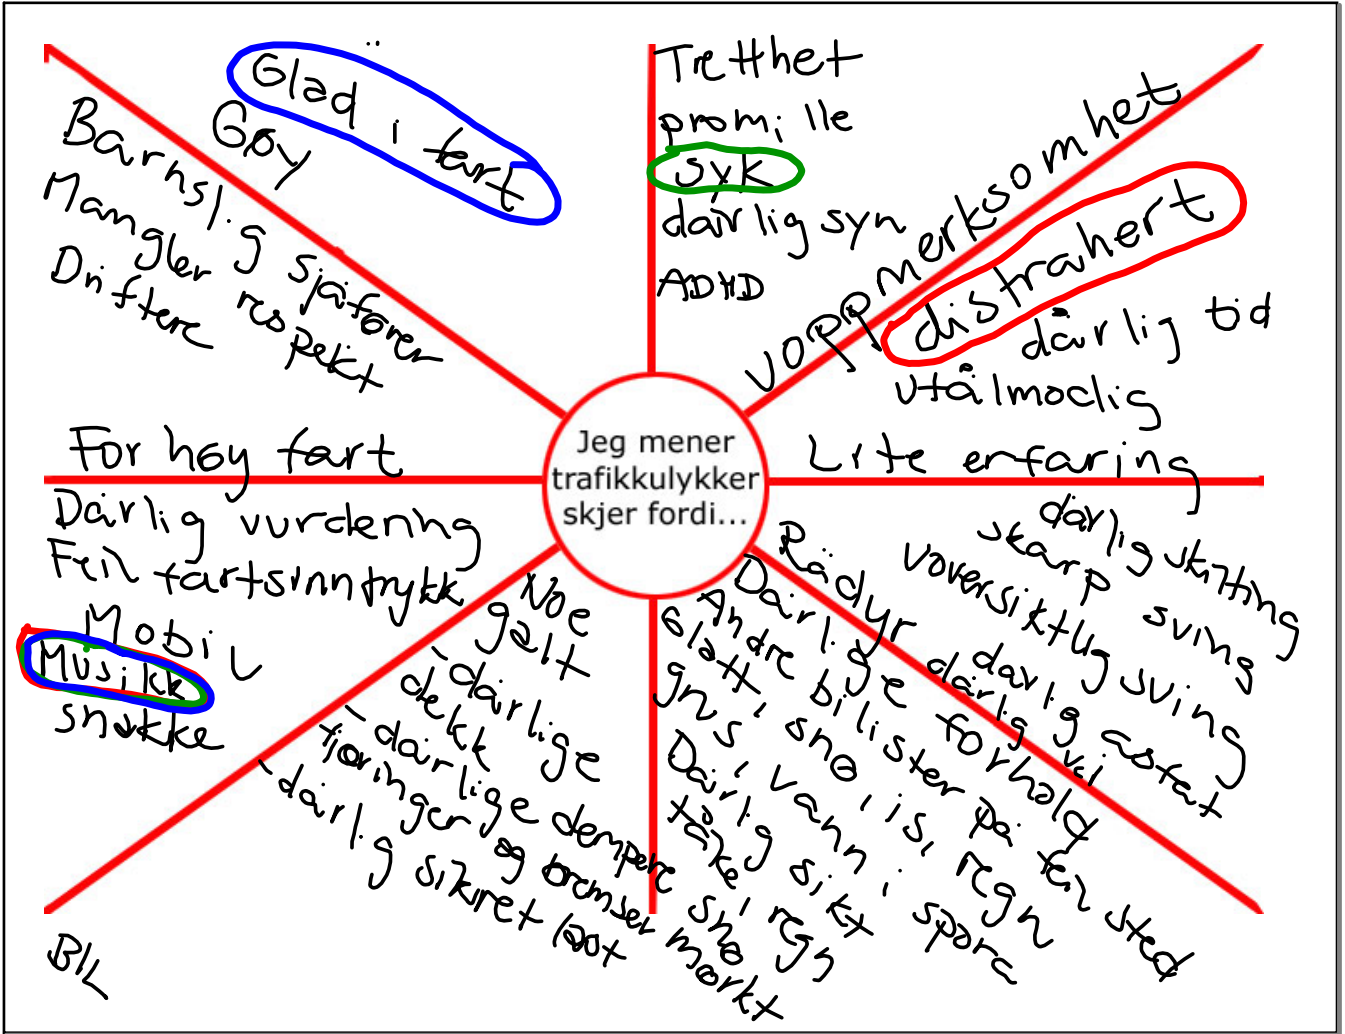 Jeg mener
trafikkulykker
skjer fordi...
Glad i fart
Gøy
Barnslig sjåfører
Mangler respekt
Driftere
Tretthet
promille
syk
dårlig syn
ADHD
uoppmerksomhet
distrahert
dårlig tid
utålmodig
Lite erfaring
dårlig skilting
skarp sving
uoversiktlig sving
dårlig asfalt
dårlig vei
Rådyr
Dårlige forhold
Andre bilister på feil sted
Glatt, snø, is, regn
grus, vann i spora
Dårlig sikt
tåke, regn
snø
mørkt
Noe
galt
- dårlige
dekk
- dårlige dempere
fjøringer og bremser
- dårlig sikret last
BIL
For høy fart
Dårlig vurdering
Feil fartsinntrykk
Mobil
Musikk
snakke